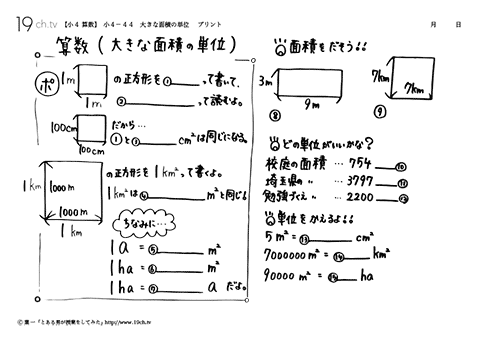 19ch.tv 【小4 算数】 小4-44 大きな面積の単位 プリント 月 日
算数 ( 大きな面積の単位 )
ポ
1m
1m
の正方形を①____って書いて、
②____って読むよ。
100cm
100cm
だから…
①と③____cm²は同じになる。
1km
1000m
1000m
1km
の正方形を1km²って書くよ。
1km²は④____m²と同じ!
ちなみに…
1a = ⑤____ m²
1ha = ⑥____ m²
1ha = ⑦____ a だよ。
面積をだそう!!
3m
9m
⑧
7km
7km
⑨
どの単位がいいかな?
校庭の面積 … 754 ____⑩
埼玉県の 〃 … 3797 ____⑪
勉強づくえ 〃 … 2200 ____⑫
単位をかえるよ!!
5m² = ⑬____ cm²
7000000m² = ⑭____ km²
90000m² = ⑮____ ha
Ⓒ葉一「とある男が授業をしてみた」http://www.19ch.tv